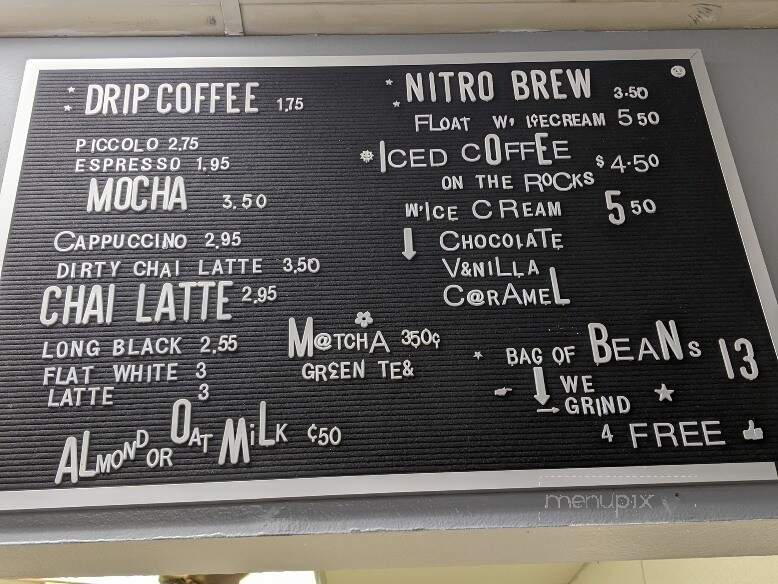 DRIP COFFEE 1.75
PICCOLO 2.75
ESPRESSO 1.95
MOCHA 3.50
CAPPUCCINO 2.95
DIRTY CHAI LATTE 3.50
CHAI LATTE 2.95
LONG BLACK 2.55
FLAT WHITE 3
LATTE 3
ALMOND OR OAT MiLK ¢50
M@TCHA 350¢
GREEN TE&
NITRO BREW 3.50
FLOAT W/ ICECREAM 5 50
ICED COFFEE $4.50
ON THE ROCKS
W'ICE CREAM 5 50
CHOCOLATE
V&NILLA
C@RAMEL
BAG OF BEANS 13
WE
GRIND
4 FREE
menupix